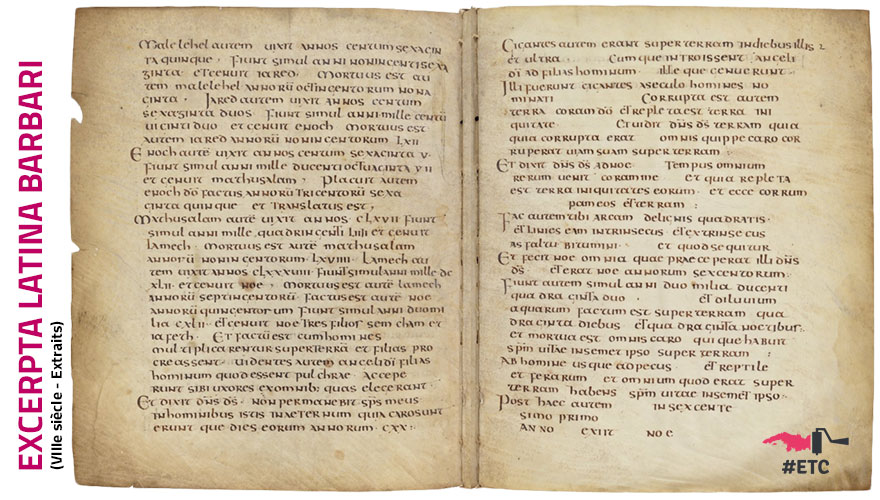 EXCERPTA LATINA BARBARI
(VIIIe siècle - Extraits)
Malelehel autem uixit annos centum sexagin
ta quinque . Fiunt simul anni noningenti sexa
ginta et genuit iared . Mortuus est au
tem malelehel annorū octingentorum nona
ginta . Iared autem uixit annos centum
sexaginta duos Fiunt simul anni mille centū
uiginti duo et genuit enoch Mortuus est
autem iared annorū noningentorum LXII
Enoch autē uixit annos centum sexaginta V.
Fiunt simul anni mille ducenti octuaginta VII
et genuit mathusalam . Placuit autem
enoch dō factus annorū tricentorū sexa
ginta quinque et translatus est ,
Mathusalam autē uixit annos CLXVII Fiunt
simul anni mille , quadringenti LIIII et genuit
lamech . Mortuus est autē mathusalam
annorū noningentorum LXVIIII . Lamech au
tem uixit annos CLXXXVIII . Fiunt simul anni mille dc
XLII . et genuit noe . Mortuus est autē lamech
annorū septingentorū . Factus est autē noe
annorū quingentorum Fiunt simul anni duomi
lia CXLII . et genuit noe tres filios sem cham et
iafeth . Et factū est cum homines
multiplicarentur super terrā et filias pro
creassent . uidentes autem angeli dī filias
hominum quod essent pulchrae . Accepe
runt sibi uxores ex omnib; quas elegerant .
Et dixit dn̄s ds̄ . Non permanebit sps̄ meus
in hominibus istis in aeternum quia caro sunt
erunt que dies eorum annorum . CXX :
Gigantes autem erant super terram in diebus illis
et ultra . Cum que introissent angeli
dī ad filias hominum . ille que genuerunt .
Illi fuerunt gigantes a seculo homines no
minati Corrupta est autem
terra coram dō et repleta est terra ini
quitate Et uidit dn̄s ds̄ terram quia
quia corrupta erat omnis quippe caro cor
ruperat uiam suam super terram :
Et dixit dn̄s ds̄ ad noe . Tempus omnium
rerum uenit coram me et quia repleta
est terra iniquitates eorum . et ecce corrum
pam eos et terram :
Fac autem tibi arcam de lignis quadratis .
et linies eam intrinsecus et extrinsecus
asfaltu bitumini et quod sequitur
Et fecit noe omnia quae praeceperat illi dn̄s
ds̄ et erat noe annorum sexcentorum .
Fiunt autem simul anni duo milia ducenti
quadraginta duo . et diluuium
aquarum factum est super terram qua
draginta diebus et quadraginta noctibus :
et mortua est omnis caro qui que habuit
spm̄ uitae in semetipso super terram :
Ab homine usque ad pecus et reptile
et ferarum et omnium quod erat super
terram habens spm̄ uitae in semetipso .
Post haec autem in sexcente
simo primo
anno exiit noe
#ETC